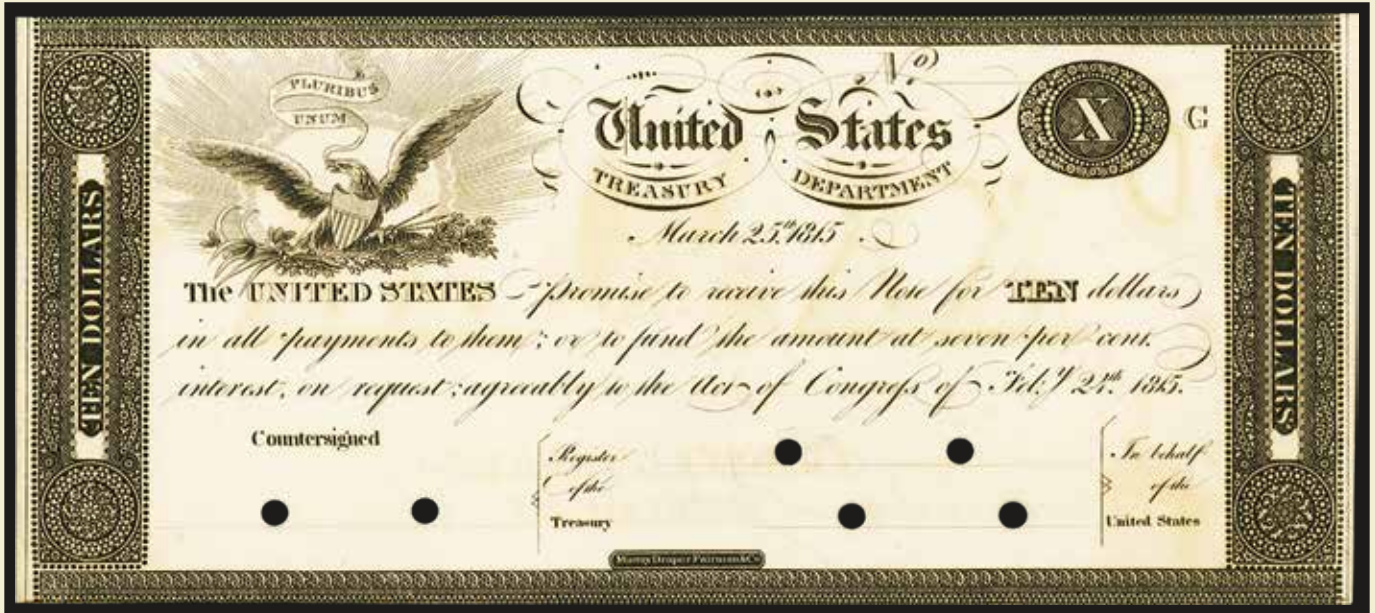 PLURIBUS
UNUM
No
United States
TREASURY DEPARTMENT
X
G
March 25th 1815
The UNITED STATES promise to receive this Note for TEN dollars
in all payments to them; or to fund the amount at seven per cent.
interest, on request; agreeably to the Act of Congress of Feb:y 24th 1815.
TEN DOLLARS
TEN DOLLARS
Countersigned
Register
of the
Treasury
In behalf
of the
United States
Murray Draper Fairman & Co